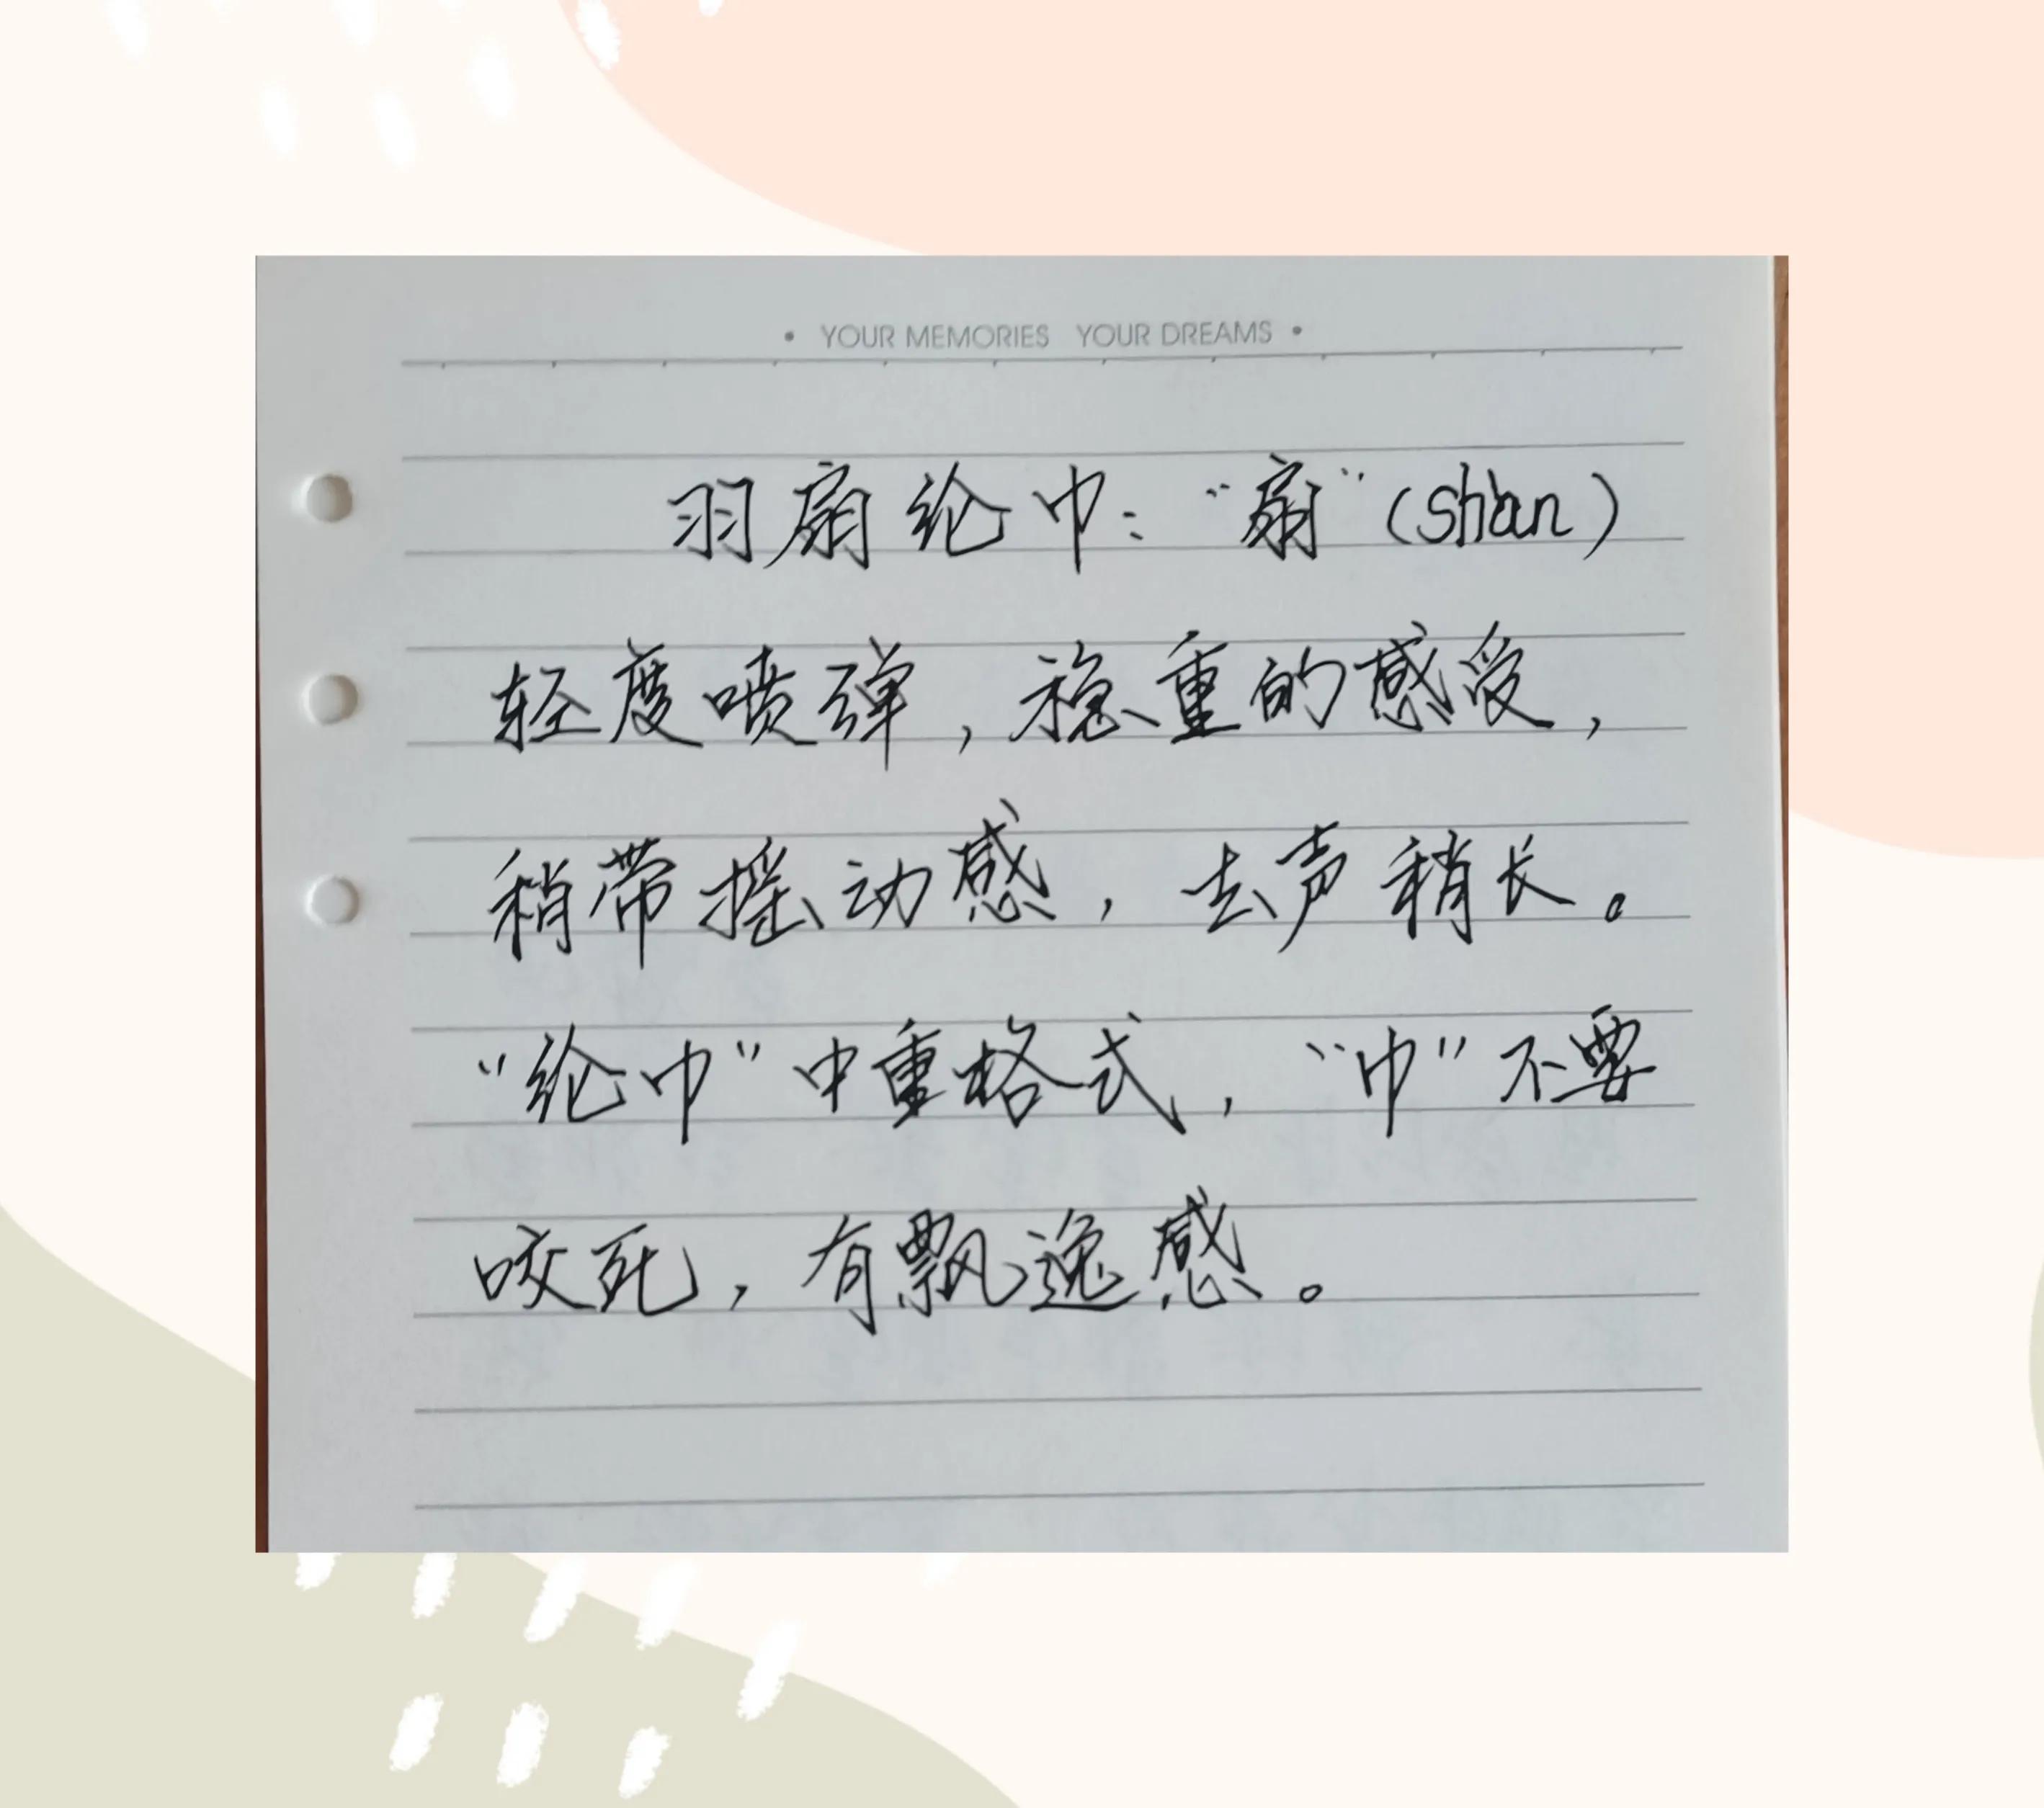 • YOUR MEMORIES YOUR DREAMS •
羽扇纶巾：“扇”（shàn）
轻度喷弹，稳重的感受，
稍带摇动感，去声稍长。
“纶巾”中重格式，“巾”不要
咬死，有飘逸感。